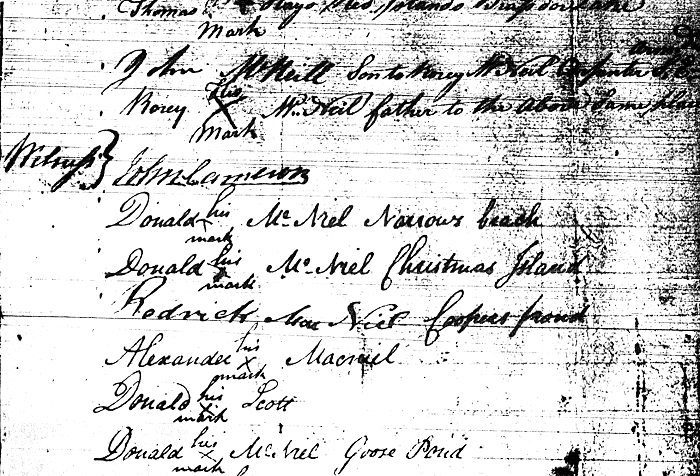 Thomas Islands
Mark
John McNeill Son to Rorey McNeil Carpenter
his
Rorey X McNeil father to the above Same place
Mark
Witness } John Cameron
his
Donald x Mc Niel Narrows beach
mark
his
Donald x Mc Niel Christmas Island
mark
Rodrick Mac Niel Coopers pond
his
Alexander x Macniel
mark
his
Donald x Scott
mark
his
Donald x McNiel Goose Pond
mark